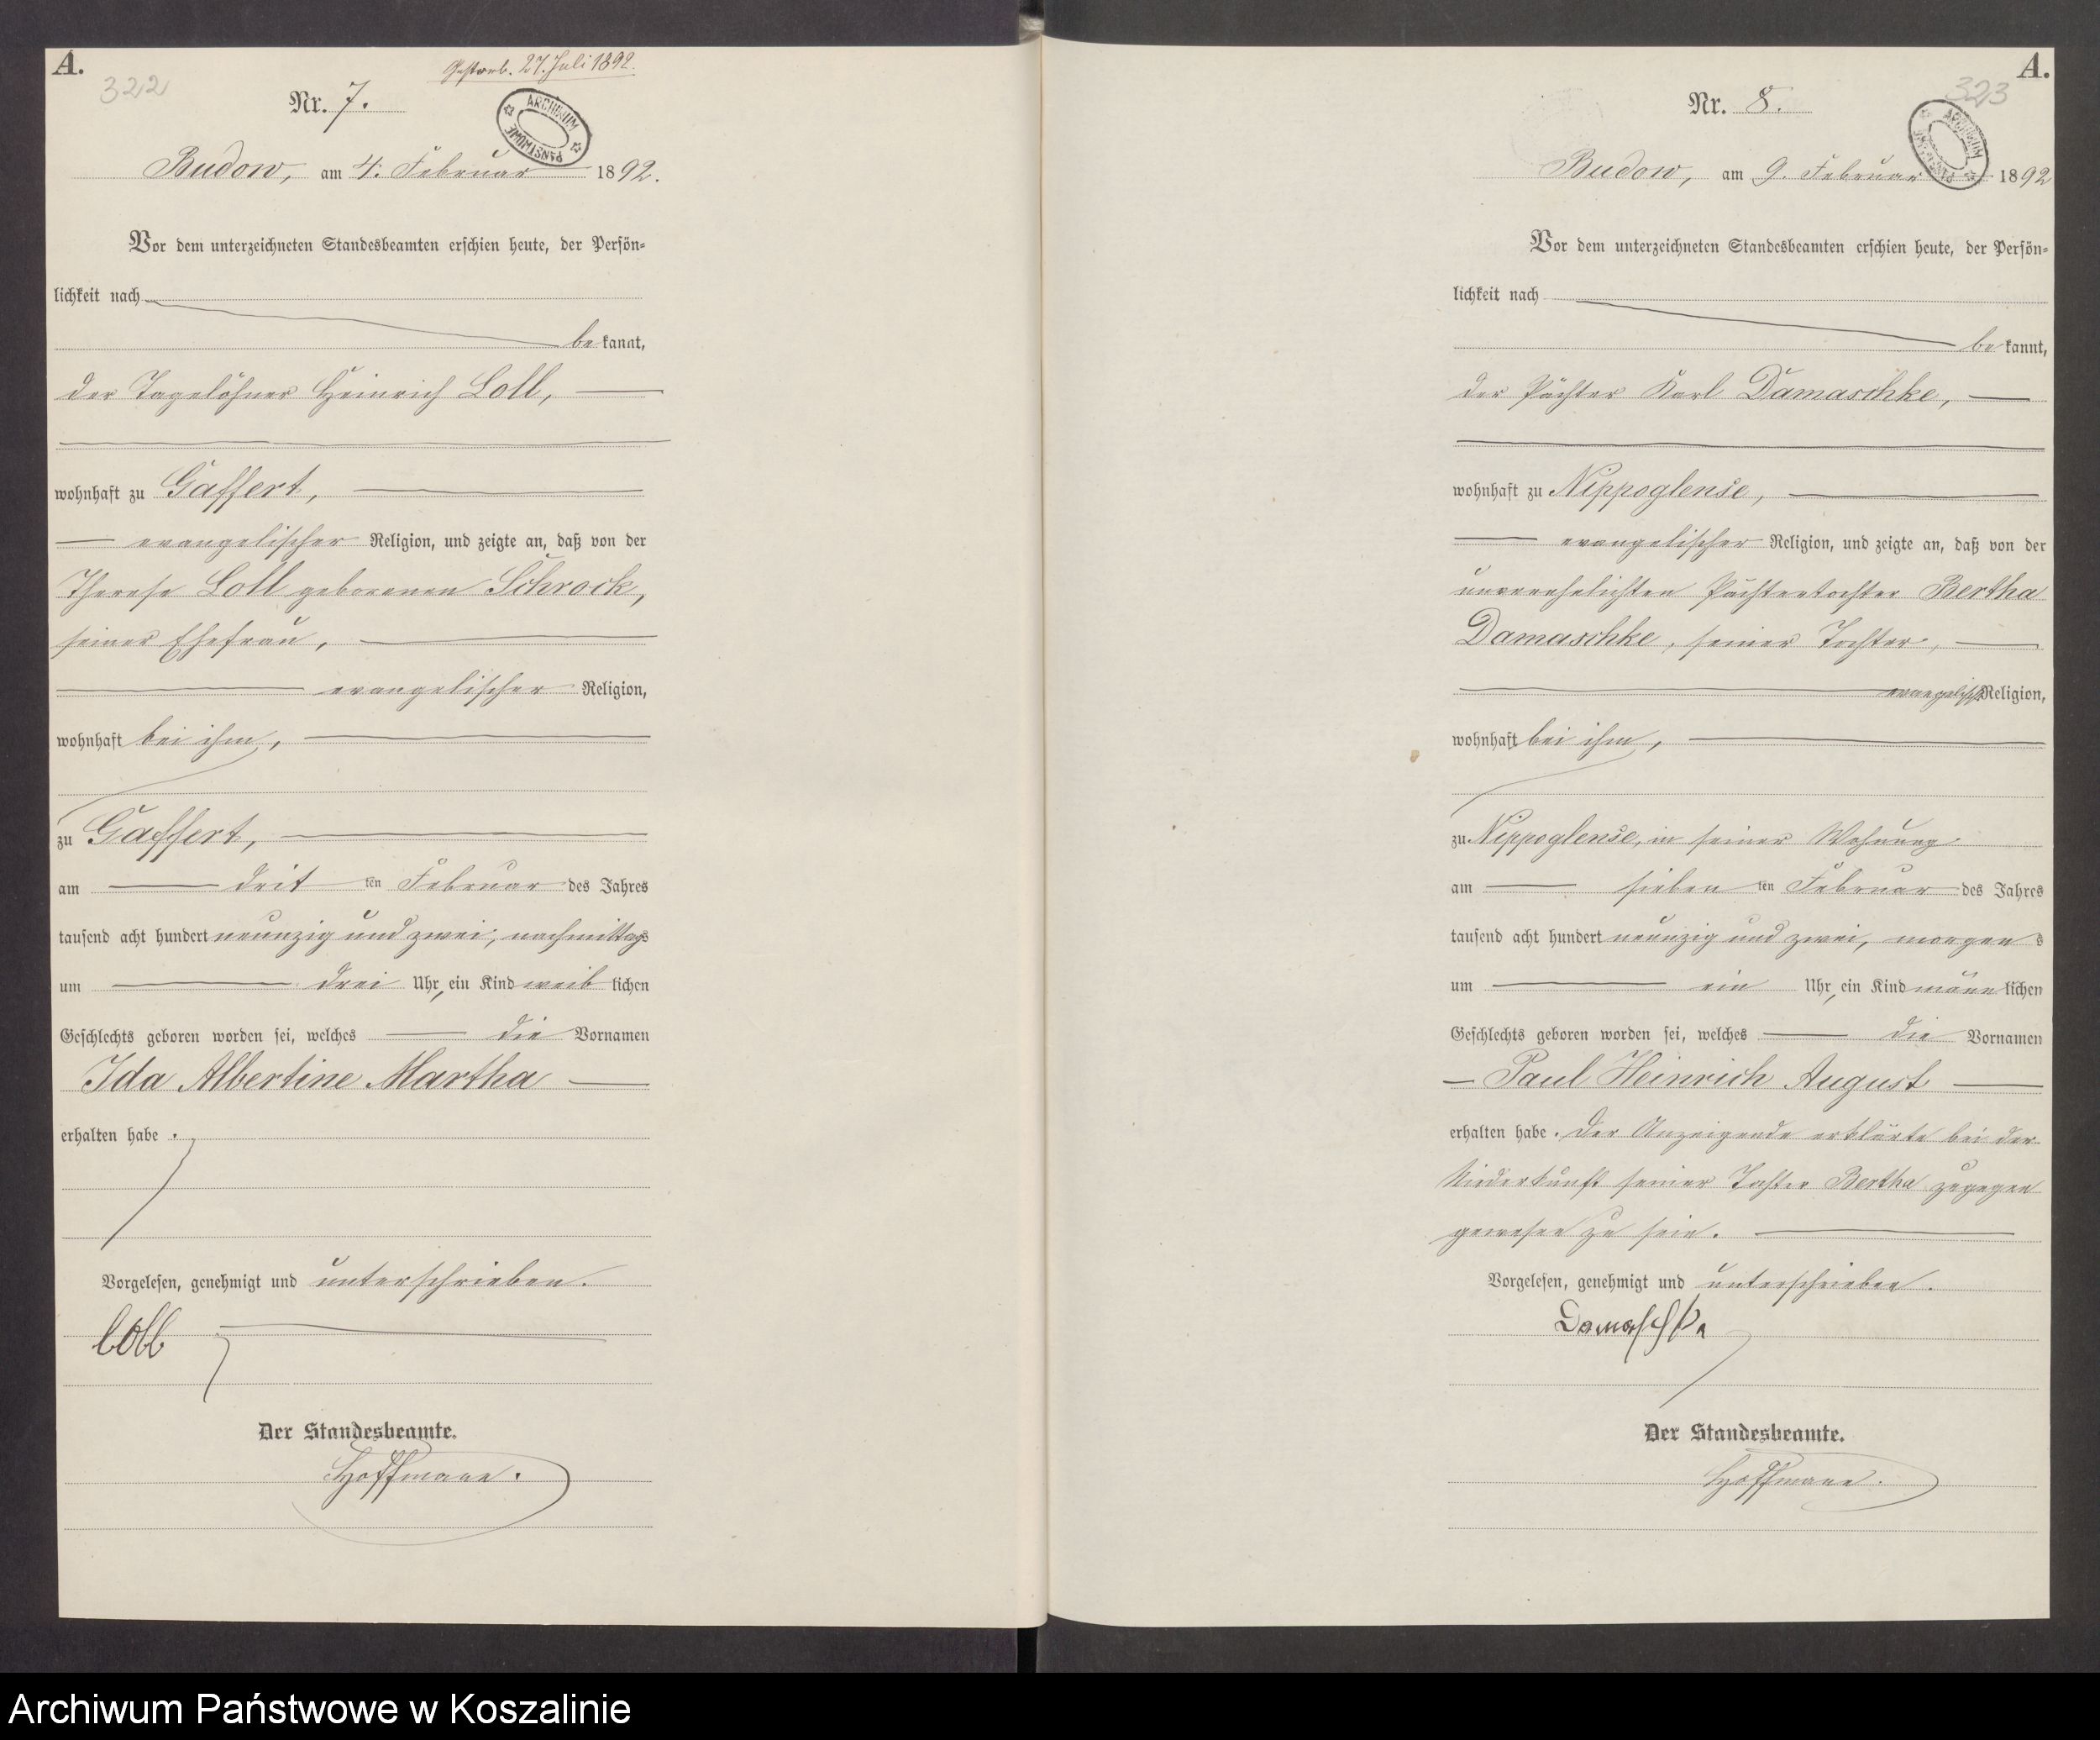 A.
322
Gestorb. 27. Juli 1892.
Nr. 7.
ARCHIWUM PAŃSTWOWE
Budow, am 4. Februar 1892.
Vor dem unterzeichneten Standesbeamten erschien heute, der Persön-
lichkeit nach
be kannt,
der Tagelöhner Heinrich Loll,
wohnhaft zu Gaffert,
evangelischer Religion, und zeigte an, daß von der
Therese Loll geborenen Schrock,
seiner Ehefrau,
evangelischer Religion,
wohnhaft bei ihm,
zu Gaffert,
am drit ten Februar des Jahres
tausend acht hundert neunzig und zwei, nachmittags
um drei Uhr, ein Kind weib lichen
Geschlechts geboren worden sei, welches die Vornamen
Ida Albertine Martha
erhalten habe.
Vorgelesen, genehmigt und unterschrieben.
Loll
Der Standesbeamte.
Hoffmann.
A.
323
Nr. 8.
ARCHIWUM PAŃSTWOWE
Budow, am 9. Februar 1892
Vor dem unterzeichneten Standesbeamten erschien heute, der Persön-
lichkeit nach
be kannt,
der Pächter Karl Damaschke,
wohnhaft zu Nippoglense,
evangelischer Religion, und zeigte an, daß von der
unverehelichten Pächtertochter Bertha
Damaschke, seiner Tochter,
evangelisch Religion,
wohnhaft bei ihm,
zu Nippoglense, in seiner Wohnung
am sieben ten Februar des Jahres
tausend acht hundert neunzig und zwei, morgens
um ein Uhr, ein Kind männ lichen
Geschlechts geboren worden sei, welches die Vornamen
Paul Heinrich August
erhalten habe. Der Anzeigende erklärte bei der
Niederkunft seiner Tochter Bertha zugegen
gewesen zu sein.
Vorgelesen, genehmigt und unterschrieben.
Damaschke
Der Standesbeamte.
Hoffmann.
Archiwum Państwowe w Koszalinie